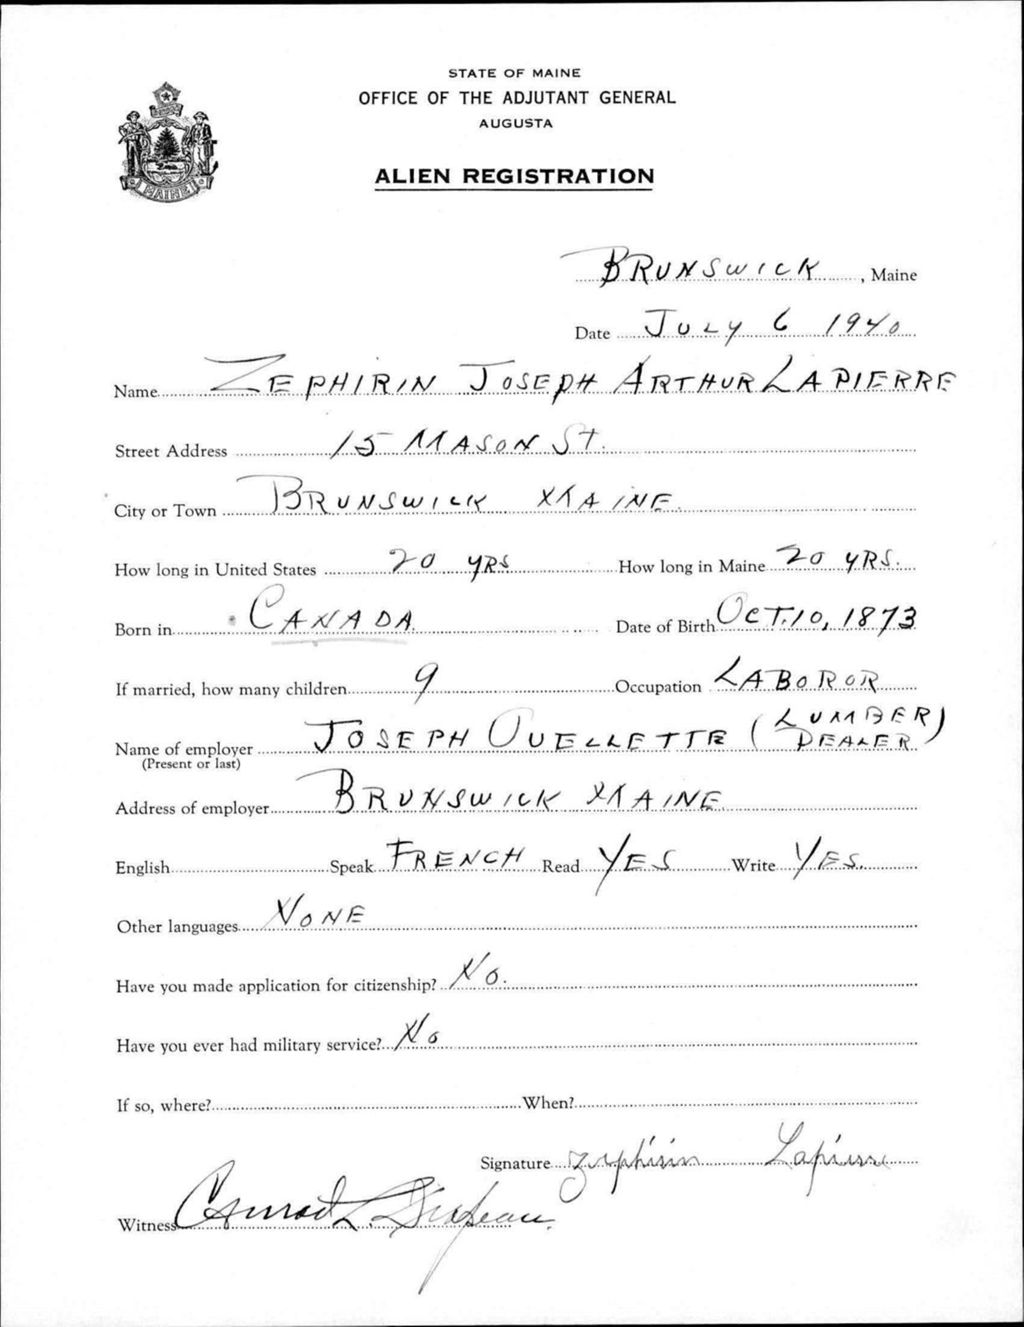 STATE OF MAINE
OFFICE OF THE ADJUTANT GENERAL
AUGUSTA
ALIEN REGISTRATION
MAINE
BRUNSWICK, Maine
Date JULY 6 1940
Name ZEPHIRIN JOSEPH ARTHUR LAPIERRE
Street Address 15 MASON ST.
City or Town BRUNSWICK MAINE.
How long in United States 20 YRS How long in Maine 20 YRS.
Born in CANADA Date of Birth OCT. 10, 1873
If married, how many children 9 Occupation LABOROR
Name of employer JOSEPH OUELLETTE (LUMBER DEALER)
(Present or last)
Address of employer BRUNSWICK MAINE
English Speak FRENCH Read YES Write YES.
Other languages NONE
Have you made application for citizenship? NO.
Have you ever had military service? NO
If so, where? When?
Signature Zephirin Lapierre
Witness Conrad L.